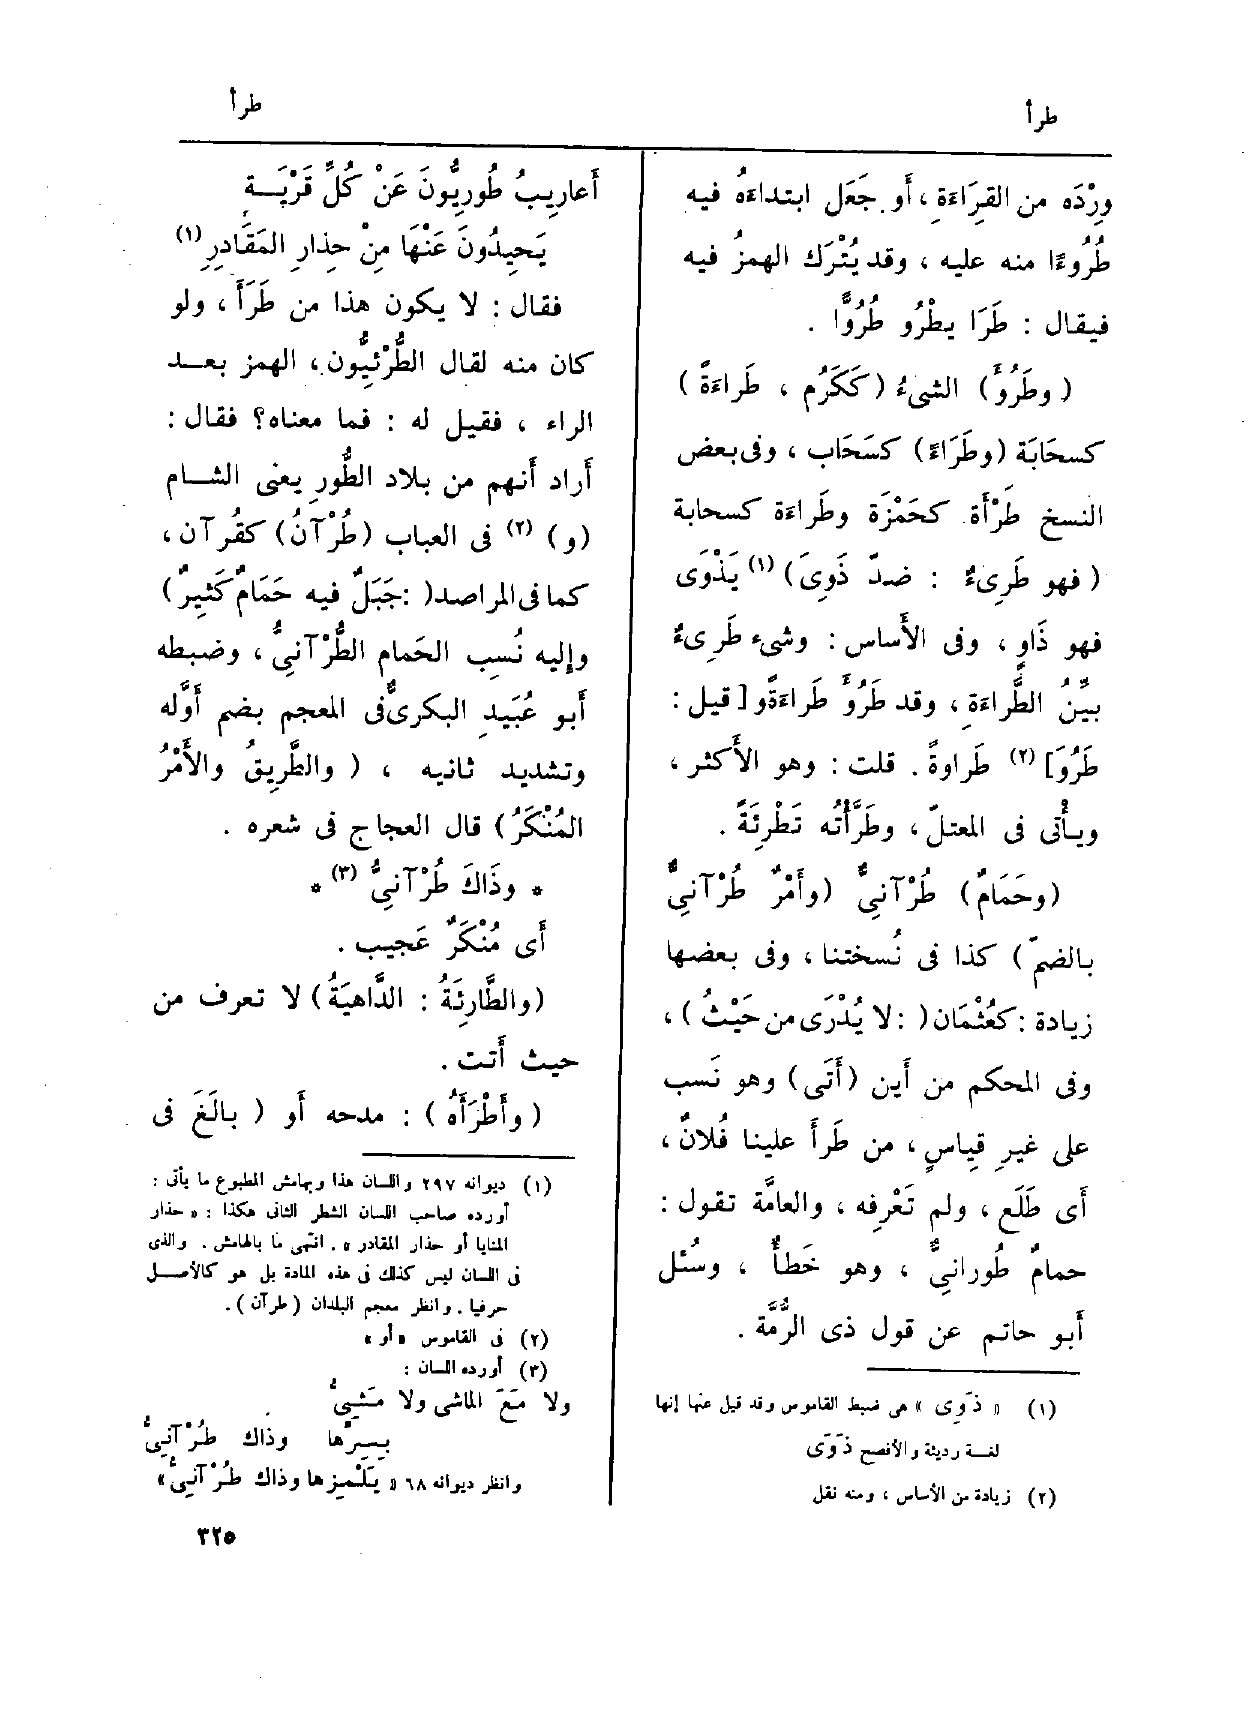 طرأ
طرأ
وِرْدَه من القِرَاءَةِ ، أَو جَعَل ابتداءَهُ فيه
طُرُوءًا منه عليه ، وقد يُتْرَك الهمزُ فيه
فيقال : طَرَا يطْرُو طُرُوًّا .
( وطَرُؤَ) الشيءُ (كَكَرُم ، طَراءَةً )
كسحَابَة (وطَرَاءً) كسَحَاب ، وفى بعض
النسخ طَرْأَة كحَمْزَة وطَراءَة كسحابة
( فهو طَرِىءٌ : ضدّ ذَوِىَ) (١) يَذْوَى
فهو ذَاوٍ ، وفى الأَساس : وشىء طَرِىءٌ
بيِّنُ الطَّراءَةِ ، وقد طَرُؤَ طَراءَةً و[ قيل :
طَرُوَ] (٢) طَراوةً . قلت : وهو الأَكثر ،
ويأْتى فى المعتلّ ، وطَرَّأْتُه تَطْرِئَةً .
(وحَمَامٌ) طُرْآنِىٌّ (وأَمْرٌ طُرْآنِىٌّ
بالضمّ ) كذا فى نُسختنا ، وفى بعضها
زيادة : كعُثْمَان( : لا يُدْرَى من حَيْثُ ) ،
وفى المحكم من أَين (أَتَى) وهو نَسب
على غيرِ قِياسٍ ، من طَرأَ علينا فُلانٌ ،
أَى طَلَع ، ولم تَعْرِفه ، والعامَّة تقول :
حمامٌ طُورانىٌّ ، وهو خَطأٌ ، وسُئل
أَبو حاتم عن قول ذى الرُّمَّة .
(١) « ذَوِى » هى ضبط القاموس وقد قيل عنها إنها
لغة رديئة والأفصح ذَوَى
(٢) زيادة من الأساس ، ومنه نقل
أَعارِيبُ طُورِيُّونَ عَنْ كُلِّ قَرْيَةٍ
يَحِيدُونَ عَنْهَا مِنْ حِذارِ المَقَادِرِ (١)
فقال : لا يكون هذا من طَرَأَ ، ولو
كان منه لقال الطُّرْئِيُّون ، الهمز بعد
الراء ، فقيل له : فما معناه؟ فقال :
أَراد أَنهم من بلاد الطُّورِ يعنى الشام
(و) (٢) فى العباب (طُرْآنُ) كقُرآن ،
كما فى المراصد( : جَبَلٌ فيه حَمَامٌ كَثيرٌ )
وإِليه نُسِب الحَمام الطُّرْآنِىُّ ، وضبطه
أَبو عُبَيدٍ البكرىُّ فى المعجم بضم أَوَّله
وتشديد ثانيه ، ( والطَّرِيقُ والأَمْرُ
المُنْكَرُ) قال العجاج فى شعره .
* وذَاكَ طُرْآنِىُّ (٣) *
أَى مُنْكَرٌ عَجيب .
(والطَّارِئَةُ : الدَّاهِيَةُ) لا تعرف من
حيث أَتت .
( وأَطْرَأَهُ ) : مدحه أَو ( بالَغَ فى
(١) ديوانه ٢٩٧ واللسان هذا وبهامش المطبوع ما يأتى :
أورده صاحب اللسان الشطر الثانى هكذا : « حذار
المنايا أو حذار المقادر » . انتهى ما بالهامش . والذى
فى اللسان ليس كذلك فى هذه المادة بل هو كالأصل
حرفيا . وانظر معجم البلدان (طرآن ) .
(٢) فى القاموس « أو »
(٣) أورده اللسان :
ولا مَعَ الماشى ولا مَشِىُّ
بِسِرِّها وذاك طُرْآنِىُّ
وانظر ديوانه ٦٨ « يَلْمِزها وذاك طُرْآنِىُّ »
٣٢٥